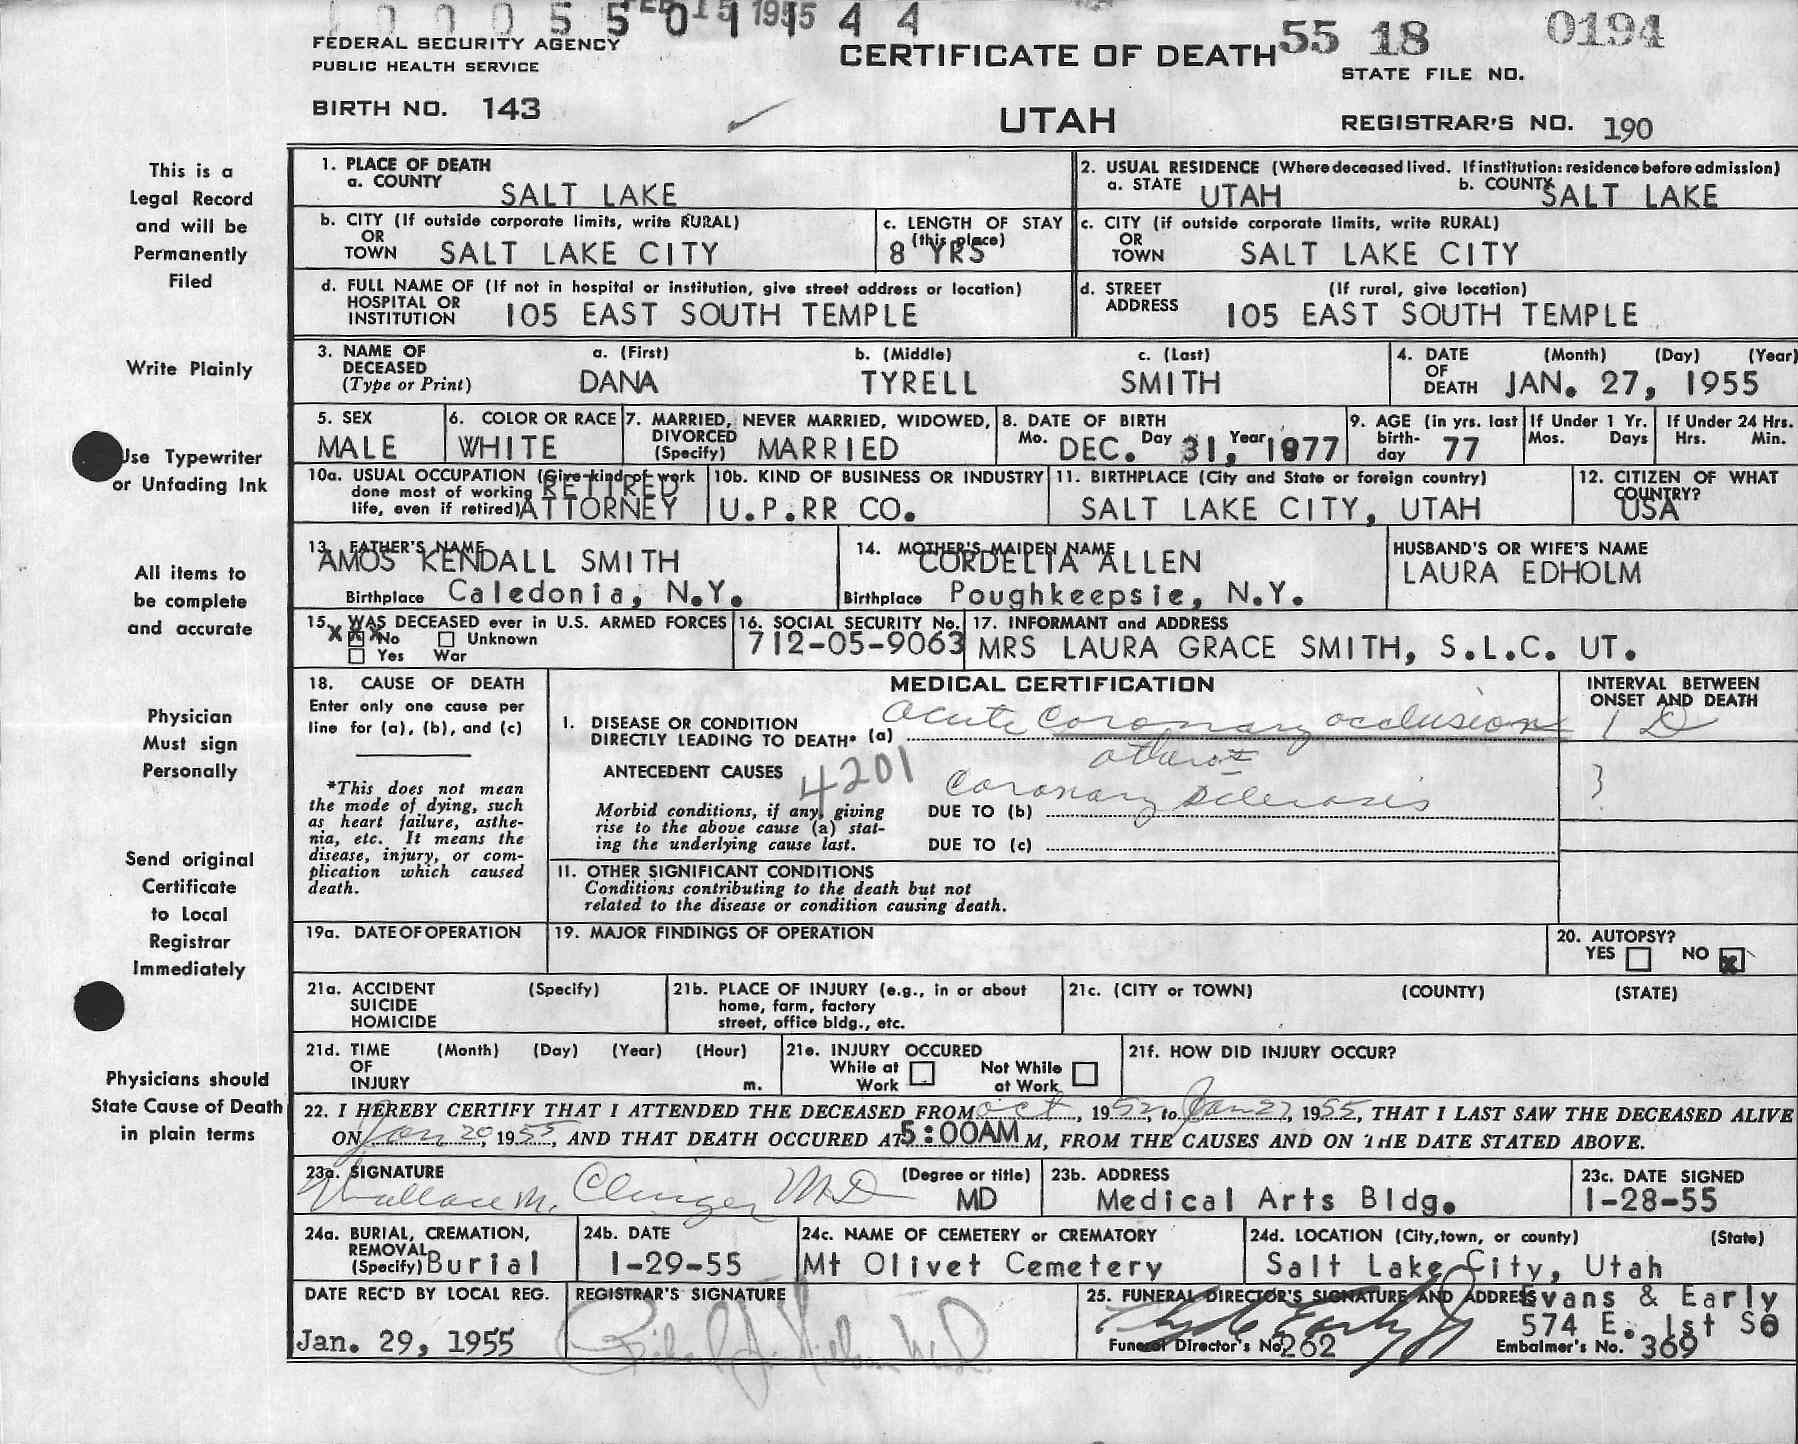 0 0 0 5 5 0 1 1 4 4
FEB 15 1955
FEDERAL SECURITY AGENCY
PUBLIC HEALTH SERVICE
CERTIFICATE OF DEATH 55 18 0194
STATE FILE NO.
BIRTH NO. 143
UTAH
REGISTRAR'S NO. 190
This is a
Legal Record
and will be
Permanently
Filed
Write Plainly
Use Typewriter
or Unfading Ink
All items to
be complete
and accurate
Physician
Must sign
Personally
Send original
Certificate
to Local
Registrar
Immediately
Physicians should
State Cause of Death
in plain terms
1. PLACE OF DEATH
a. COUNTY SALT LAKE
2. USUAL RESIDENCE (Where deceased lived. If institution: residence before admission)
a. STATE UTAH b. COUNTY SALT LAKE
b. CITY (If outside corporate limits, write RURAL)
OR
TOWN SALT LAKE CITY
c. LENGTH OF STAY
(this place)
8 YRS
c. CITY (if outside corporate limits, write RURAL)
OR
TOWN SALT LAKE CITY
d. FULL NAME OF (If not in hospital or institution, give street address or location)
HOSPITAL OR
INSTITUTION 105 EAST SOUTH TEMPLE
d. STREET (If rural, give location)
ADDRESS 105 EAST SOUTH TEMPLE
3. NAME OF a. (First) b. (Middle) c. (Last)
DECEASED
(Type or Print) DANA TYRELL SMITH
4. DATE (Month) (Day) (Year)
OF
DEATH JAN. 27, 1955
5. SEX
MALE
6. COLOR OR RACE
WHITE
7. MARRIED, NEVER MARRIED, WIDOWED,
DIVORCED
(Specify) MARRIED
8. DATE OF BIRTH
Mo. DEC. Day 31, Year 1877
9. AGE (in yrs. last
birth-
day 77
If Under 1 Yr.
Mos. Days
If Under 24 Hrs.
Hrs. Min.
10a. USUAL OCCUPATION (Give kind of work
done most of working RETIRED
life, even if retired) ATTORNEY
10b. KIND OF BUSINESS OR INDUSTRY
U.P.RR CO.
11. BIRTHPLACE (City and State or foreign country)
SALT LAKE CITY, UTAH
12. CITIZEN OF WHAT
COUNTRY?
USA
13. FATHER'S NAME
AMOS KENDALL SMITH
Birthplace Caledonia, N.Y.
14. MOTHER'S MAIDEN NAME
CORDELIA ALLEN
Birthplace Poughkeepsie, N.Y.
HUSBAND'S OR WIFE'S NAME
LAURA EDHOLM
15. WAS DECEASED ever in U.S. ARMED FORCES
X X X No Unknown
Yes War
16. SOCIAL SECURITY No.
712-05-9063
17. INFORMANT and ADDRESS
MRS LAURA GRACE SMITH, S.L.C. UT.
18. CAUSE OF DEATH
Enter only one cause per
line for (a), (b), and (c)
*This does not mean
the mode of dying, such
as heart failure, asthe-
nia, etc. It means the
disease, injury, or com-
plication which caused
death.
MEDICAL CERTIFICATION
INTERVAL BETWEEN
ONSET AND DEATH
I. DISEASE OR CONDITION
DIRECTLY LEADING TO DEATH* (a) Acute coronary occlusion 1 D
ANTECEDENT CAUSES 4201
Morbid conditions, if any, giving
rise to the above cause (a) stat-
ing the underlying cause last.
DUE TO (b) Coronary sclerosis
DUE TO (c)
II. OTHER SIGNIFICANT CONDITIONS
Conditions contributing to the death but not
related to the disease or condition causing death.
19a. DATE OF OPERATION
19. MAJOR FINDINGS OF OPERATION
20. AUTOPSY?
YES NO X
21a. ACCIDENT (Specify)
SUICIDE
HOMICIDE
21b. PLACE OF INJURY (e.g., in or about
home, farm, factory
street, office bldg., etc.
21c. (CITY or TOWN) (COUNTY) (STATE)
21d. TIME (Month) (Day) (Year) (Hour)
OF
INJURY m.
21e. INJURY OCCURED
While at Work Not While at Work
21f. HOW DID INJURY OCCUR?
22. I HEREBY CERTIFY THAT I ATTENDED THE DECEASED FROM Oct, 1952, to Jan 27, 1955, THAT I LAST SAW THE DECEASED ALIVE
ON Jan 20, 1955, AND THAT DEATH OCCURED AT 5:00AM M, FROM THE CAUSES AND ON THE DATE STATED ABOVE.
23a. SIGNATURE (Degree or title)
Wallace M. Clinger MD MD
23b. ADDRESS
Medical Arts Bldg.
23c. DATE SIGNED
1-28-55
24a. BURIAL, CREMATION,
REMOVAL
(Specify) Burial
24b. DATE
1-29-55
24c. NAME OF CEMETERY or CREMATORY
Mt Olivet Cemetery
24d. LOCATION (City, town, or county) (State)
Salt Lake City, Utah
DATE REC'D BY LOCAL REG.
Jan. 29, 1955
REGISTRAR'S SIGNATURE
25. FUNERAL DIRECTOR'S SIGNATURE AND ADDRESS
Evans & Early
574 E. 1st So
Funeral Director's No. 262 Embalmer's No. 369